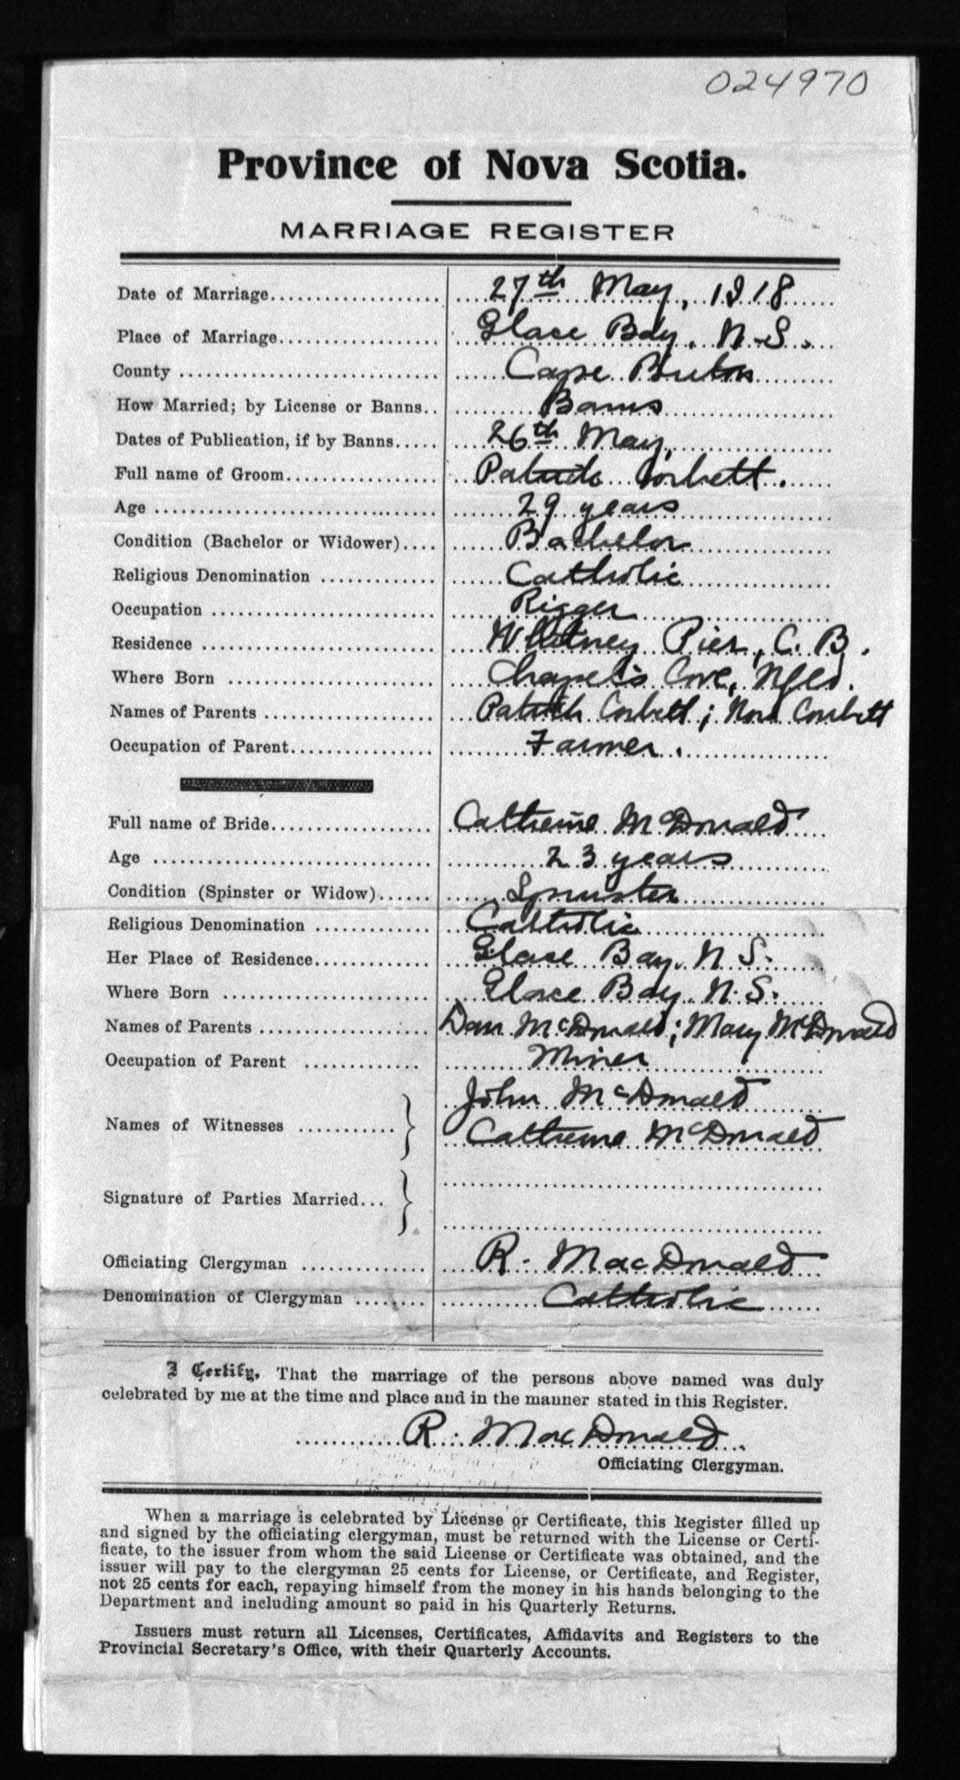 024970
Province of Nova Scotia.
MARRIAGE REGISTER
Date of Marriage.................... 27th May, 1918
Place of Marriage................... Glace Bay. N.S.
County .............................. Cape Breton
How Married; by License or Banns.. Banns
Dates of Publication, if by Banns..... 26th May,
Full name of Groom.................. Patrick Corbett.
Age ................................. 29 years
Condition (Bachelor or Widower).... Bachelor
Religious Denomination ............. Catholic
Occupation .......................... Rigger
Residence ........................... Whitney Pier, C. B.
Where Born ........................ Chapel's Cove, Nfld.
Names of Parents .................... Patrick Corbett; Nora Corbett
Occupation of Parent................. Farmer.
Full name of Bride................... Catherine McDonald
Age ................................. 23 years
Condition (Spinster or Widow)...... Spinster
Religious Denomination .............. Catholic
Her Place of Residence.............. Glace Bay. N S.
Where Born ......................... Glace Bay N.S.
Names of Parents .................... Dan McDonald; Mary McDonald
Occupation of Parent .............. Miner
Names of Witnesses ........... John McDonald
Catherine McDonald
Signature of Parties Married...
Officiating Clergyman ............... R. MacDonald
Denomination of Clergyman ......... Catholic
I Certify, That the marriage of the persons above named was duly
celebrated by me at the time and place and in the manner stated in this Register.
R. MacDonald
Officiating Clergyman.
When a marriage is celebrated by License or Certificate, this Register filled up
and signed by the officiating clergyman, must be returned with the License or Certi-
ficate, to the issuer from whom the said License or Certificate was obtained, and the
issuer will pay to the clergyman 25 cents for License, or Certificate, and Register,
not 25 cents for each, repaying himself from the money in his hands belonging to the
Department and including amount so paid in his Quarterly Returns.
Issuers must return all Licenses, Certificates, Affidavits and Registers to the
Provincial Secretary's Office, with their Quarterly Accounts.